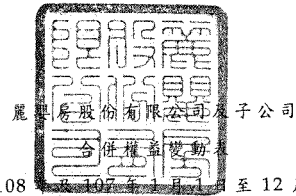 麗嬰房股份有限公司及子公司
合併權益變動表
108 年及 107 年 1 月 1 日至 12 月